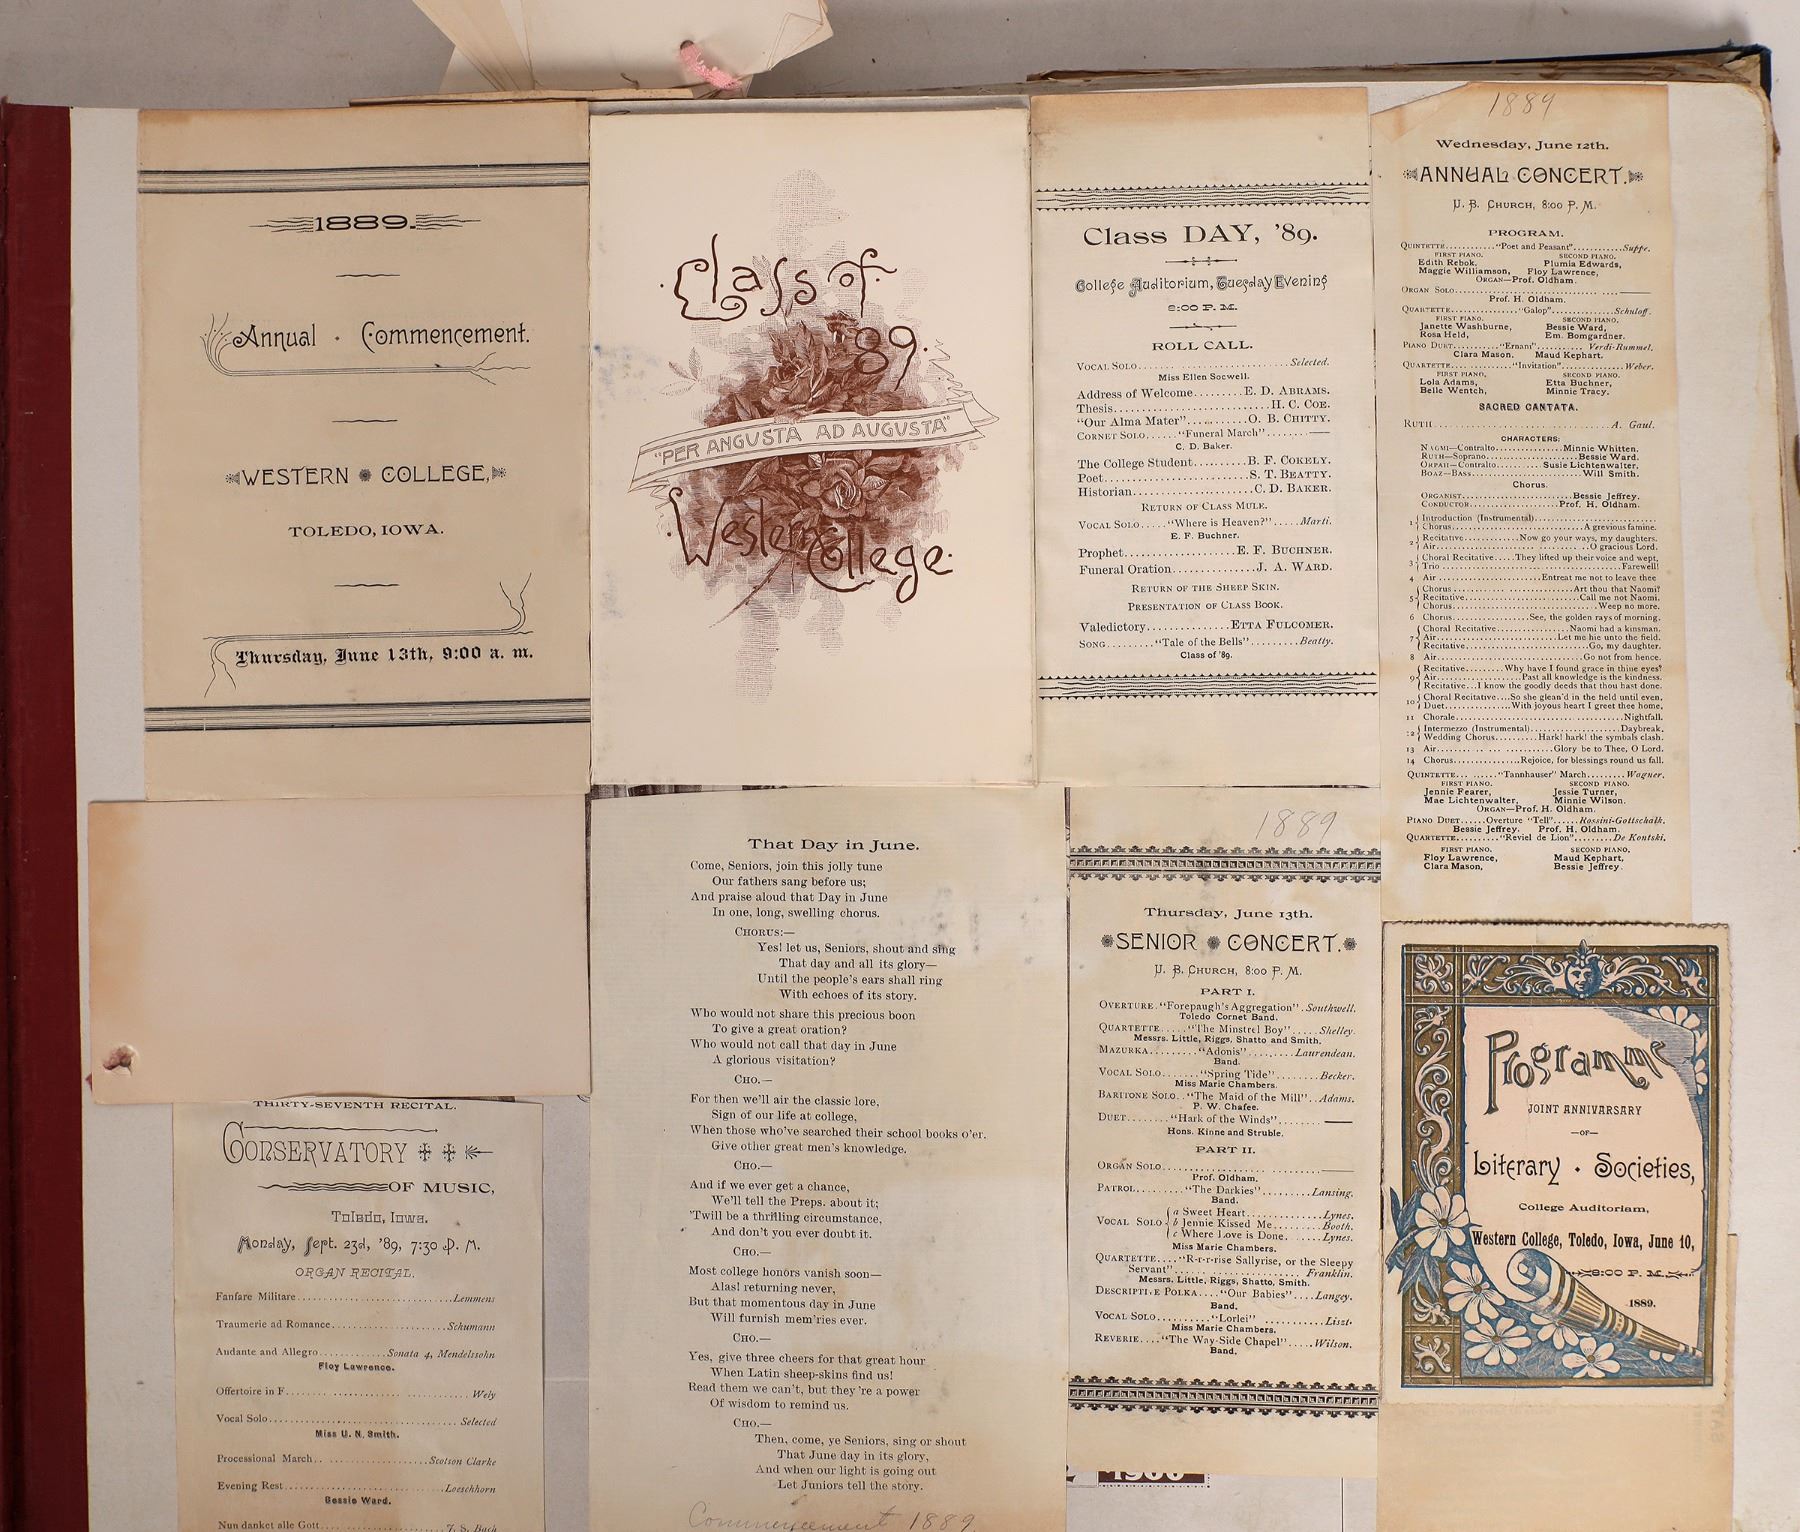 1889.
Annual · Commencement.
WESTERN COLLEGE,
TOLEDO, IOWA.
Thursday, June 13th, 9:00 a. m.
Class of
'89.
"PER ANGUSTA AD AUGUSTA"
Western College.
Class DAY, '89.
College Auditorium, Tuesday Evening
8:00 P. M.
ROLL CALL.
VOCAL SOLO.....Selected.
Miss Ellen Socwell.
Address of Welcome.....E. D. ABRAMS.
Thesis.....H. C. COE.
"Our Alma Mater".....O. B. CHITTY.
CORNET SOLO....."Funeral March".....
C. D. Baker.
The College Student.....B. F. COKELY.
Poet.....S. T. BEATTY.
Historian.....C. D. BAKER.
RETURN OF CLASS MULE.
VOCAL SOLO....."Where is Heaven?".....Marti.
E. F. Buchner.
Prophet.....E. F. BUCHNER.
Funeral Oration.....J. A. WARD.
RETURN OF THE SHEEP SKIN.
PRESENTATION OF CLASS BOOK.
Valedictory.....ETTA FULCOMER.
SONG....."Tale of the Bells".....Beatty.
Class of '89.
1889
Wednesday, June 12th.
ANNUAL CONCERT.
U. B. CHURCH, 8:00 P. M.
PROGRAM.
QUINTETTE....."Poet and Peasant".....Suppe.
FIRST PIANO. SECOND PIANO.
Edith Rebok. Plumia Edwards,
Maggie Williamson, Floy Lawrence,
ORGAN—Prof. Oldham.
ORGAN SOLO.....
Prof. H. Oldham.
QUARTETTE....."Galop".....Schuloff.
FIRST PIANO. SECOND PIANO.
Janette Washburne, Bessie Ward,
Rosa Held, Em. Bomgardner.
PIANO DUET....."Ernani".....Verdi-Rummel.
Clara Mason. Maud Kephart.
QUARTETTE....."Invitation".....Weber.
FIRST PIANO, SECOND PIANO.
Lola Adams, Etta Buchner,
Belle Wentch, Minnie Tracy.
SACRED CANTATA.
RUTH.....A. Gaul.
CHARACTERS:
NAOMI—Contralto.....Minnie Whitten.
RUTH—Soprano.....Bessie Ward.
ORPAH—Contralto.....Susie Lichtenwalter.
BOAZ—BASS.....Will Smith.
Chorus.
ORGANIST.....Bessie Jeffrey.
CONDUCTOR.....Prof. H. Oldham.
1 Introduction (Instrumental).....
Chorus.....A grevious famine.
2 Recitative.....Now go your ways, my daughters.
Air.....O gracious Lord.
3 Choral Recitative.....They lifted up their voice and wept,
Trio.....Farewell!
4 Air.....Entreat me not to leave thee
5 Chorus.....Art thou that Naomi?
Recitative.....Call me not Naomi.
Chorus.....Weep no more.
6 Chorus.....See, the golden rays of morning.
7 Choral Recitative.....Naomi had a kinsman.
Air.....Let me hie unto the field.
Recitative.....Go, my daughter.
8 Air.....Go not from hence.
9 Recitative.....Why have I found grace in thine eyes?
Air.....Past all knowledge is the kindness.
Recitative...I know the goodly deeds that thou hast done.
10 Choral Recitative....So she glean'd in the field until even.
Duet.....With joyous heart I greet thee home,
11 Chorale.....Nightfall.
12 Intermezzo (Instrumental).....Daybreak.
Wedding Chorus.....Hark! hark! the symbals clash.
13 Air.....Glory be to Thee, O Lord.
14 Chorus.....Rejoice, for blessings round us fall.
QUINTETTE....."Tannhauser" March.....Wagner.
FIRST PIANO. SECOND PIANO.
Jennie Fearer, Jessie Turner,
Mae Lichtenwalter, Minnie Wilson.
ORGAN—Prof. H. Oldham.
PIANO DUET.....Overture "Tell".....Rossini-Gottschalk.
Bessie Jeffrey. Prof. H. Oldham.
QUARTETTE....."Reviel de Lion".....De Kontski.
FIRST PIANO. SECOND PIANO,
Floy Lawrence, Maud Kephart,
Clara Mason, Bessie Jeffrey.
THIRTY-SEVENTH RECITAL.
CONSERVATORY
OF MUSIC,
Toledo, Iowa.
Monday, Sept. 23d, '89, 7:30 P. M.
ORGAN RECITAL.
Fanfare Militare.....Lemmens
Traumerie ad Romance.....Schumann
Andante and Allegro.....Sonata 4, Mendelssohn
Floy Lawrence.
Offertoire in F.....Wely
Vocal Solo.....Selected
Miss U. N. Smith.
Processional March.....Scotson Clarke
Evening Rest.....Loeschhorn
Bessie Ward.
Nun danket alle Gott.....7, S. Bach
That Day in June.
Come, Seniors, join this jolly tune
Our fathers sang before us;
And praise aloud that Day in June
In one, long, swelling chorus.
CHORUS:—
Yes! let us, Seniors, shout and sing
That day and all its glory—
Until the people's ears shall ring
With echoes of its story.
Who would not share this precious boon
To give a great oration?
Who would not call that day in June
A glorious visitation?
CHO.—
For then we'll air the classic lore,
Sign of our life at college,
When those who've searched their school books o'er.
Give other great men's knowledge.
CHO.—
And if we ever get a chance,
We'll tell the Preps. about it;
'Twill be a thrilling circumstance,
And don't you ever doubt it.
CHO.—
Most college honors vanish soon—
Alas! returning never,
But that momentous day in June
Will furnish mem'ries ever.
CHO.—
Yes, give three cheers for that great hour
When Latin sheep-skins find us!
Read them we can't, but they're a power
Of wisdom to remind us.
CHO.—
Then, come, ye Seniors, sing or shout
That June day in its glory,
And when our light is going out
Let Juniors tell the story.
Commencement 1889.
1889
Thursday, June 13th.
SENIOR CONCERT.
U. B. CHURCH, 8:00 P. M.
PART I.
OVERTURE."Forepaugh's Aggregation".Southwell.
Toledo Cornet Band.
QUARTETTE....."The Minstrel Boy".....Shelley.
Messrs. Little, Riggs, Shatto and Smith.
MAZURKA....."Adonis".....Laurendean.
Band.
VOCAL SOLO....."Spring Tide".....Becker.
Miss Marie Chambers.
BARITONE SOLO.."The Maid of the Mill"..Adams.
P. W. Chafee.
DUET....."Hark of the Winds".....
Hons. Kinne and Struble.
PART II.
ORGAN SOLO.....
Prof. Oldham.
PATROL....."The Darkies".....Lansing.
Band.
VOCAL SOLO a Sweet Heart.....Lynes.
b Jennie Kissed Me.....Booth.
c Where Love is Done.....Lynes.
Miss Marie Chambers.
QUARTETTE...."R-r-r-rise Sallyrise, or the Sleepy
Servant".....Franklin.
Messrs. Little, Riggs, Shatto, Smith.
DESCRIPTIVE POLKA...."Our Babies".....Langey.
Band.
VOCAL SOLO....."Lorlei".....Liszt.
Miss Marie Chambers.
REVERIE...."The Way-Side Chapel".....Wilson.
Band.
1900
Programme
JOINT ANNIVARSARY
—OF—
Literary · Societies,
College Auditoriam,
Western College, Toledo, Iowa, June 10,
8:00 P. M.
1889.